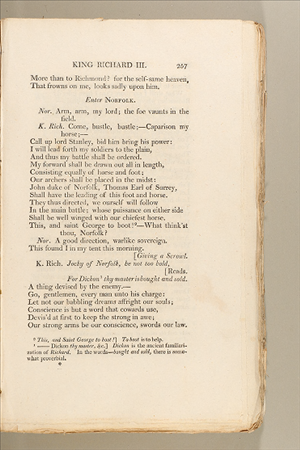 KING RICHARD III. 267
More than to Richmond? for the self-same heaven,
That frowns on me, looks sadly upon him.
Enter NORFOLK.
Nor. Arm, arm, my lord; the foe vaunts in the
field.
K. Rich. Come, bustle, bustle;—Caparison my
horse;—
Call up lord Stanley, bid him bring his power:
I will lead forth my soldiers to the plain,
And thus my battle shall be ordered.
My forward shall be drawn out all in length,
Consisting equally of horse and foot;
Our archers shall be placed in the midst:
John duke of Norfolk, Thomas Earl of Surrey,
Shall have the leading of this foot and horse.
They thus directed, we ourself will follow
In the main battle; whose puissance on either side
Shall be well winged with our chiefest horse.
This, and saint George to boot!—What think'st
thou, Norfolk?
Nor. A good direction, warlike sovereign.
This found I in my tent this morning.
[Giving a Scrowl.
K. Rich. Jocky of Norfolk, be not too bold,
[Reads.
For Dickon thy master is bought and sold.
A thing devised by the enemy.—
Go, gentlemen, every man unto his charge:
Let not our babbling dreams affright our souls;
Conscience is but a word that cowards use,
Devis'd at first to keep the strong in awe;
Our strong arms be our conscience, swords our law.
This, and Saint George to boot!] To boot is to help.
—— Dickon thy master, &c.] Dickon is the ancient familiari-
zation of Richard. In the words—bought and sold, there is some-
what proverbial.